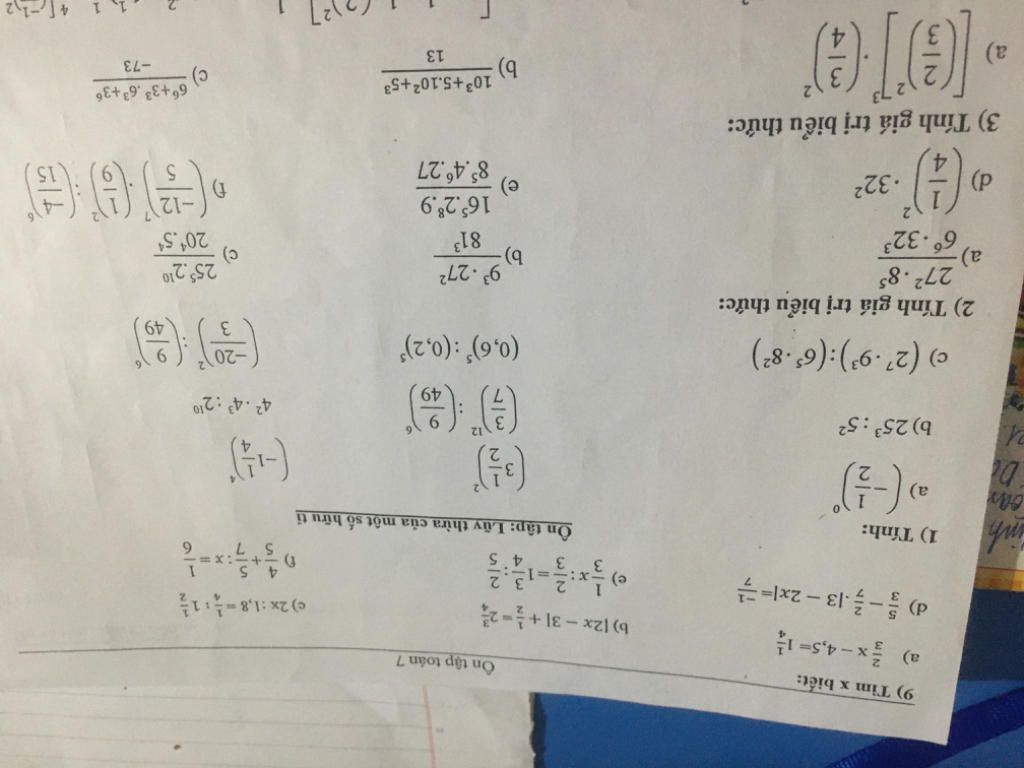 Ôn tập toán 7
9) Tìm x biết:
a) 2/3 x − 4,5 = 1 1/4
b) |2x − 3| + 1/2 = 2 3/4
c) 2x : 1,8 = 1/4 : 1 1/2
d) 5/3 − 2/7 . |3 − 2x| = −1/7
e) 1/3 x : 2/3 = 1 3/4 : 2/5
f) 4/5 + 5/7 : x = 1/6
Ôn tập: Lũy thừa của một số hữu tỉ
1) Tính:
a) (−1/2)⁰
(3 1/2)²
(−1 1/4)⁴
b) 25³ : 5²
(3/7)¹² : (9/49)⁶
4² . 4³ : 2¹⁰
c) (2⁷ . 9³) : (6⁵ . 8²)
(0,6)⁵ : (0,2)⁵
(−20/3)² : (9/49)⁶
2) Tính giá trị biểu thức:
a) 27² . 8⁵ / 6⁶ . 32³
b) 9³ . 27² / 81³
c) 25⁵ . 2¹⁰ / 20⁴ . 5⁴
d) (1/4)² . 32²
e) 16⁵ . 2⁸ . 9 / 8⁵ . 4⁶ . 27
f) (−12/5)⁷ . (1/9)² : (−4/15)⁶
3) Tính giá trị biểu thức:
a) [(2/3)²]³ . (3/4)²
b) 10³ + 5.10² + 5³ / 13
c) 6⁶ + 3³ . 6³ + 3⁶ / −73